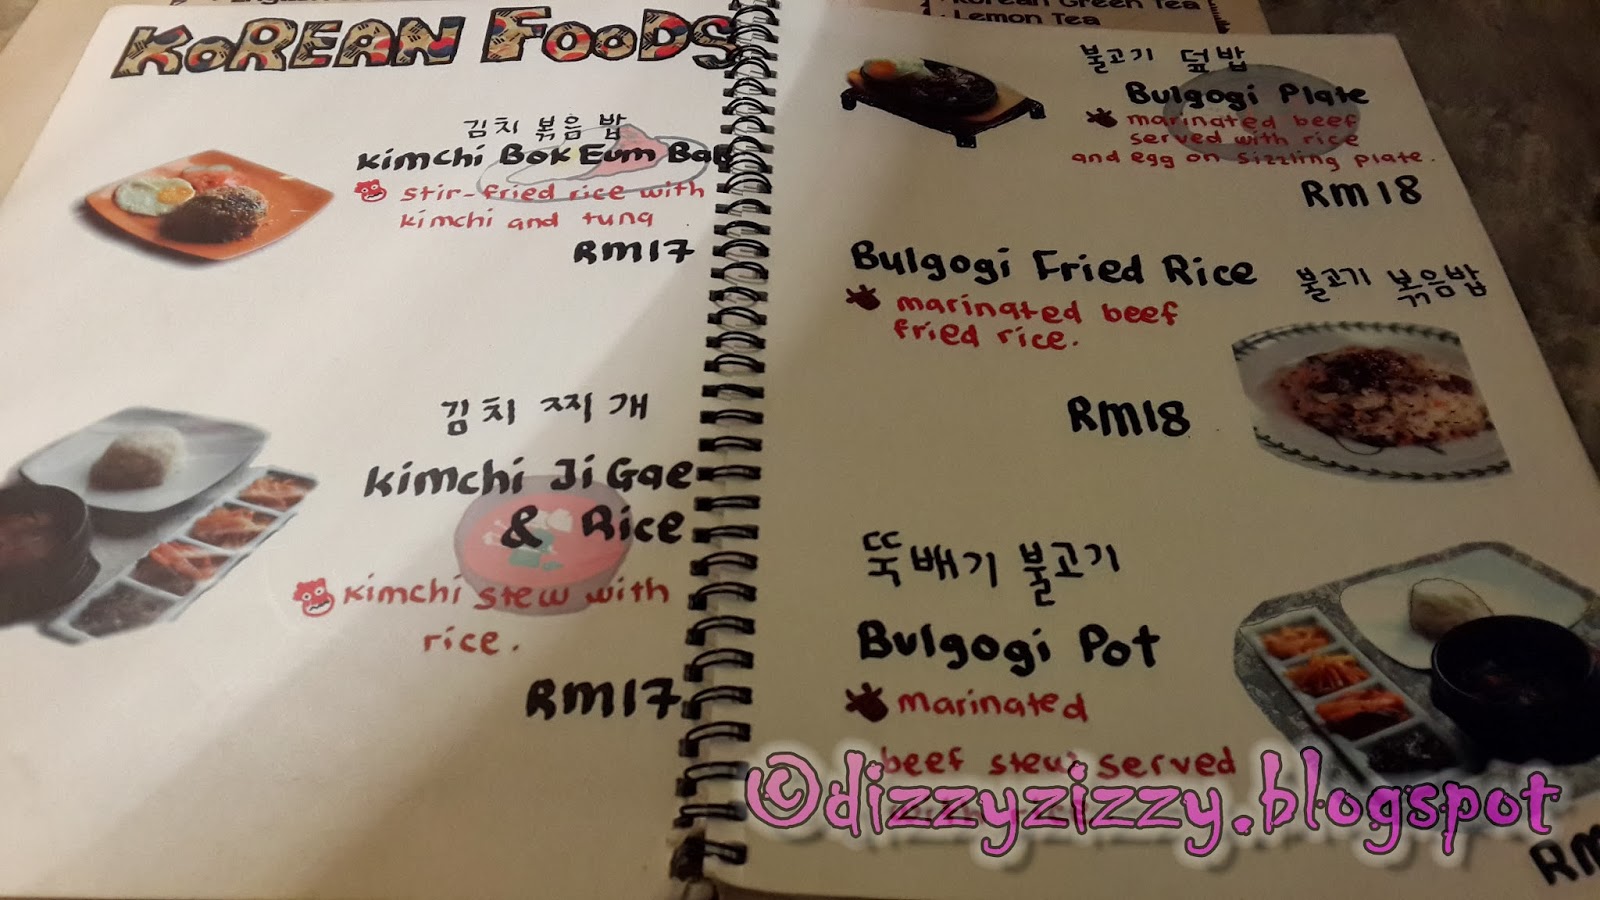 KOREAN FOODS
김치 볶음 밥
Kimchi Bok Eum Bab
stir-fried rice with
kimchi and tuna
RM17
김치 찌개
Kimchi Ji Gae
& Rice
kimchi stew with
rice.
RM17
Korean Green Tea
Lemon Tea
불고기 덮밥
Bulgogi Plate
marinated beef
served with rice
and egg on sizzling plate.
RM18
Bulgogi Fried Rice 불고기 볶음밥
marinated beef
fried rice.
RM18
뚝배기 불고기
Bulgogi Pot
marinated
beef stew served
RM
©dizzyzizzy.blogspot